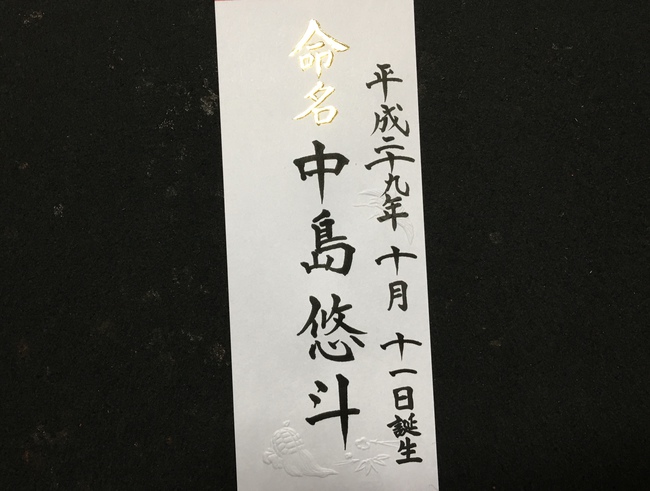 平成二十九年 十月 十一日誕生
命名 中島悠斗